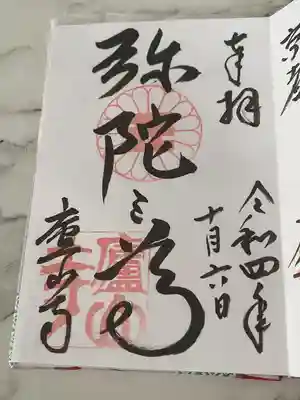 奉拝
令和四年
十月六日
弥陀三尊
廬山寺
廬山寺